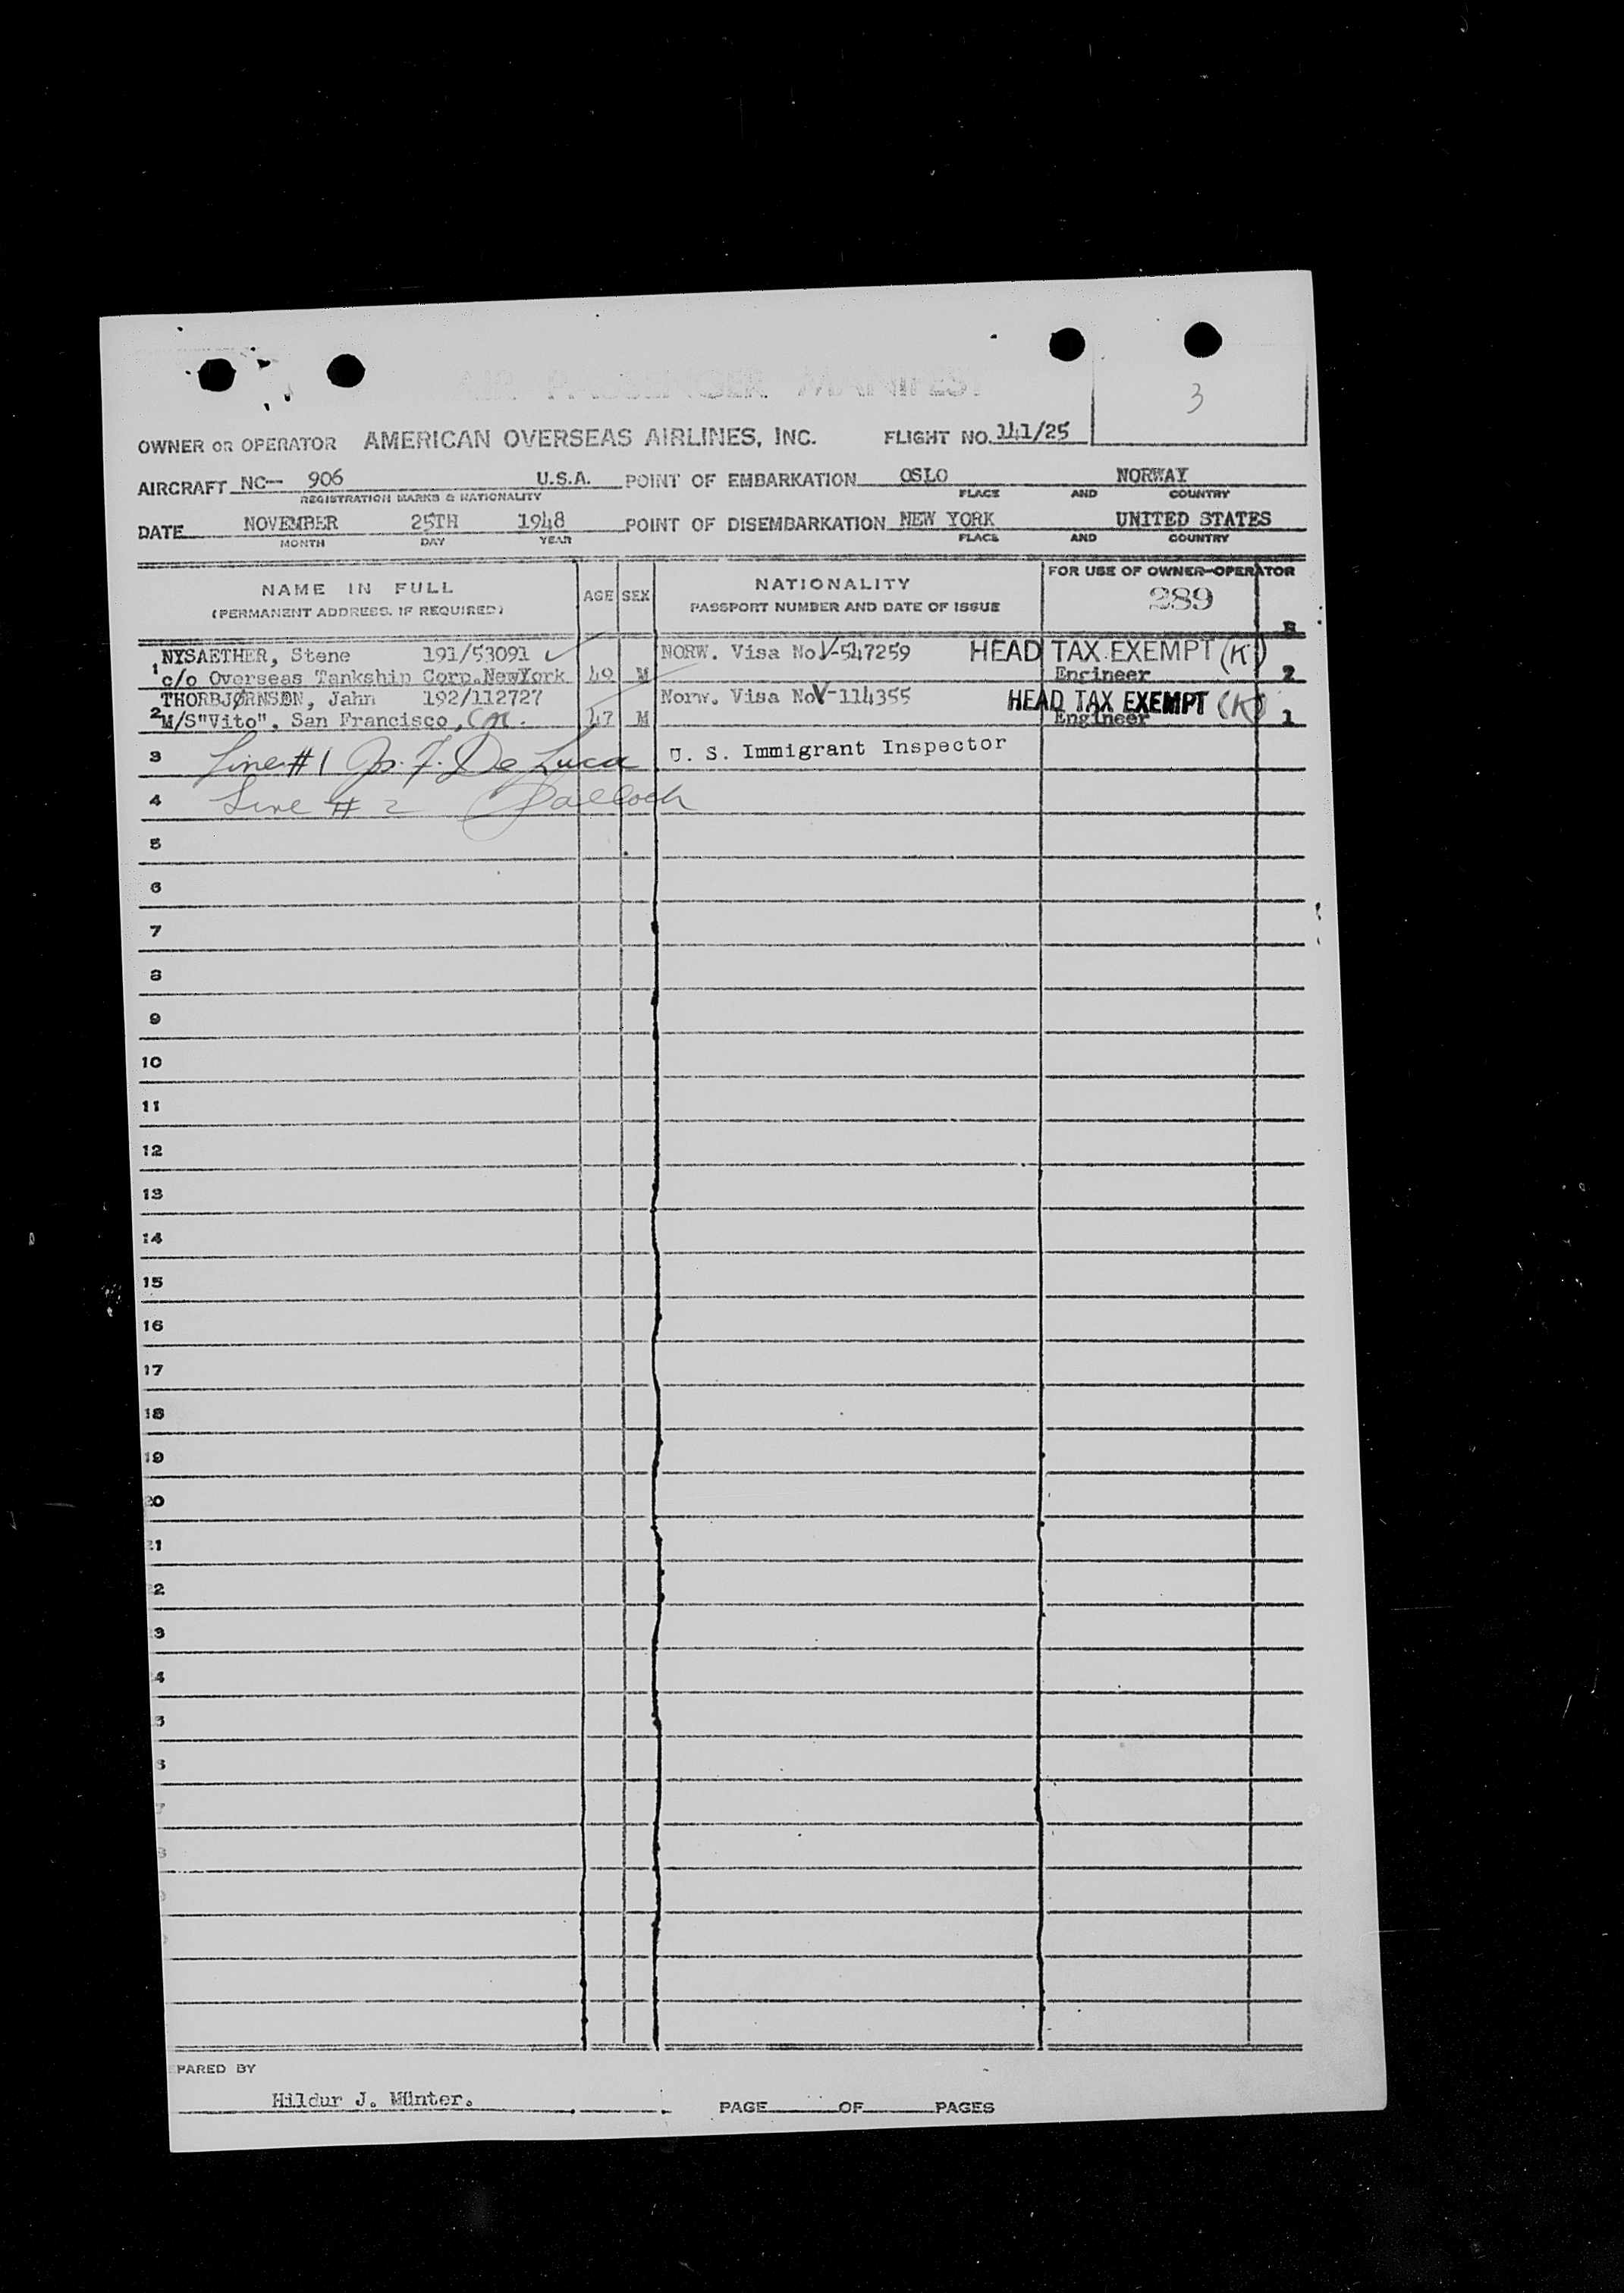 AIR PASSENGER MANIFEST
3
OWNER OR OPERATOR AMERICAN OVERSEAS AIRLINES, INC. FLIGHT NO. 141/25
AIRCRAFT NC-- 906 U.S.A. POINT OF EMBARKATION OSLO NORWAY
REGISTRATION MARKS & NATIONALITY PLACE AND COUNTRY
DATE NOVEMBER 25TH 1948 POINT OF DISEMBARKATION NEW YORK UNITED STATES
MONTH DAY YEAR PLACE AND COUNTRY
NAME IN FULL AGE SEX NATIONALITY FOR USE OF OWNER-OPERATOR
(PERMANENT ADDRESS, IF REQUIRED) PASSPORT NUMBER AND DATE OF ISSUE 289
NYSAETHER, Stene 191/53091 NORW. Visa No V-547259 HEAD TAX EXEMPT (K)
1 c/o Overseas Tankship Corp.NewYork 49 M Engineer 2
THORBJØRNSEN, Jahn 192/112727 Norw. Visa No V-114355 HEAD TAX EXEMPT (K)
2 M/S"Vito", San Francisco, 47 M Engineer 1
3 Line #1 Jos. F. De Luca U. S. Immigrant Inspector
4 Line # 2
5
6
7
8
9
10
11
12
13
14
15
16
17
18
19
20
21
22
3
4
5
6
7
8
PARED BY
Hildur J. Münter.
PAGE OF PAGES